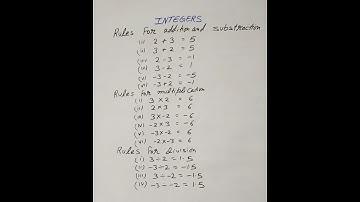 INTEGERS
Rules for addition and substraction
(i) 2 + 3 = 5
(ii) 3 + 2 = 5
(iii) 2 - 3 = -1
(iv) 3 - 2 = 1
(v) -3 - 2 = -5
(vi) -3 + 2 = -1
Rules for multiplication
(i) 3 x 2 = 6
(ii) 2 x 3 = 6
(iii) 3 x -2 = -6
(iv) -2 x 3 = -6
(v) -3 x -2 = 6
(vi) -2 x -3 = 6
Rules for division
(i) 3 ÷ 2 = 1.5
(ii) -3 ÷ 2 = -1.5
(iii) 3 ÷ -2 = -1.5
(iv) -3 ÷ -2 = 1.5